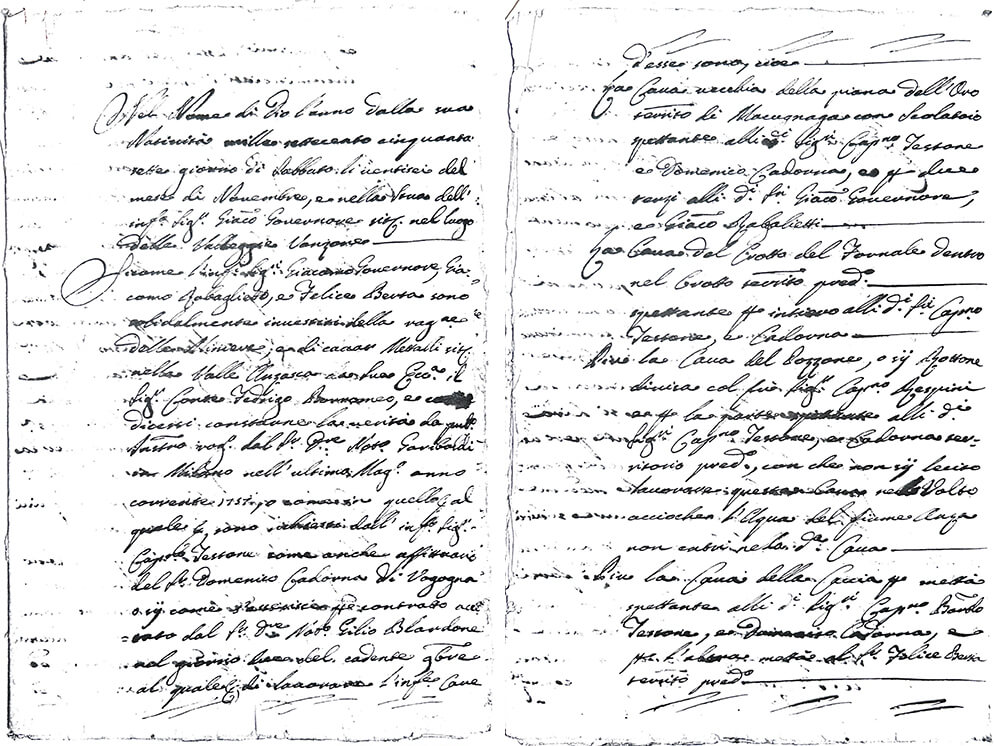 Nel Nome di Dio l'anno dalla sua
Natività mille settecento cinquanta
sette giorno di Sabbato li ventisei del
mese di Novembre, e nella Stua dell'
inf.to Sig.r Giacō Governore sit. nel luogo
delle Valleggie Vanzone
Sicome l'inf.i Sig.ri Giacomo Governore, Gia-
como Rabaglietti, e Felice Berta sono
solidalmente investiti della rag.ne
delle Miniere, e di cavar Metalli sit.
nella Valle Anzasca da Sua Ecc.a il
Sig.r Conte Fedrigo Borromeo, e
dicersi constarne la verità da pub.o
Instro rog.o dal S.r Not.o Garibaldi
in Milano nell'ultimo Mag.o anno
corrente 1757, o come in quello, al
quale sono dall' inf.to Sig.r
Cap.no Testone come anche affittavio
del S.r Domenico Cadorna di Vogogna
o sij come contratto
dal S.r Not.o Gilio Blardone
nel giorno del cadente 9bre
al quale di lavorare l'inf.te Cave
d'esse sono, cioè
Cava vecchia della piana dell'Ovo
territo di Macugnaga con Scolatoio
spettante alli d.i Sig.ri Cap.no Testone
e Domenico Cadorna, e p due
terzi alli d.i Sri Giacō Governore,
e Giacō Rabalietti
Cava del Crotto del Fornale dentro
nel Crotto territo pred.o
spettante p intiero alli d.i Sri Cap.no
Testone, e Cadorna
Più la Cava del Pozzone, o sij Rottone
divisa col Sig.r Cap.no
e p la parte spettante alli d.i
Sig.ri Cap.no Testone, e Cadorna ter-
ritorio pred.o, con che non sij lecito
lavorare questa Cava nel Volto
acciochè l'Aqua del fiume Anza
non entri nella d.a Cava
Più la Cava della Caccia p metà
spettante alli d.i Sig.ri Cap.no Barto
Testone, e Domenico Cadorna, e
p l'altra metà al S.r Felice Berta
territo pred.o